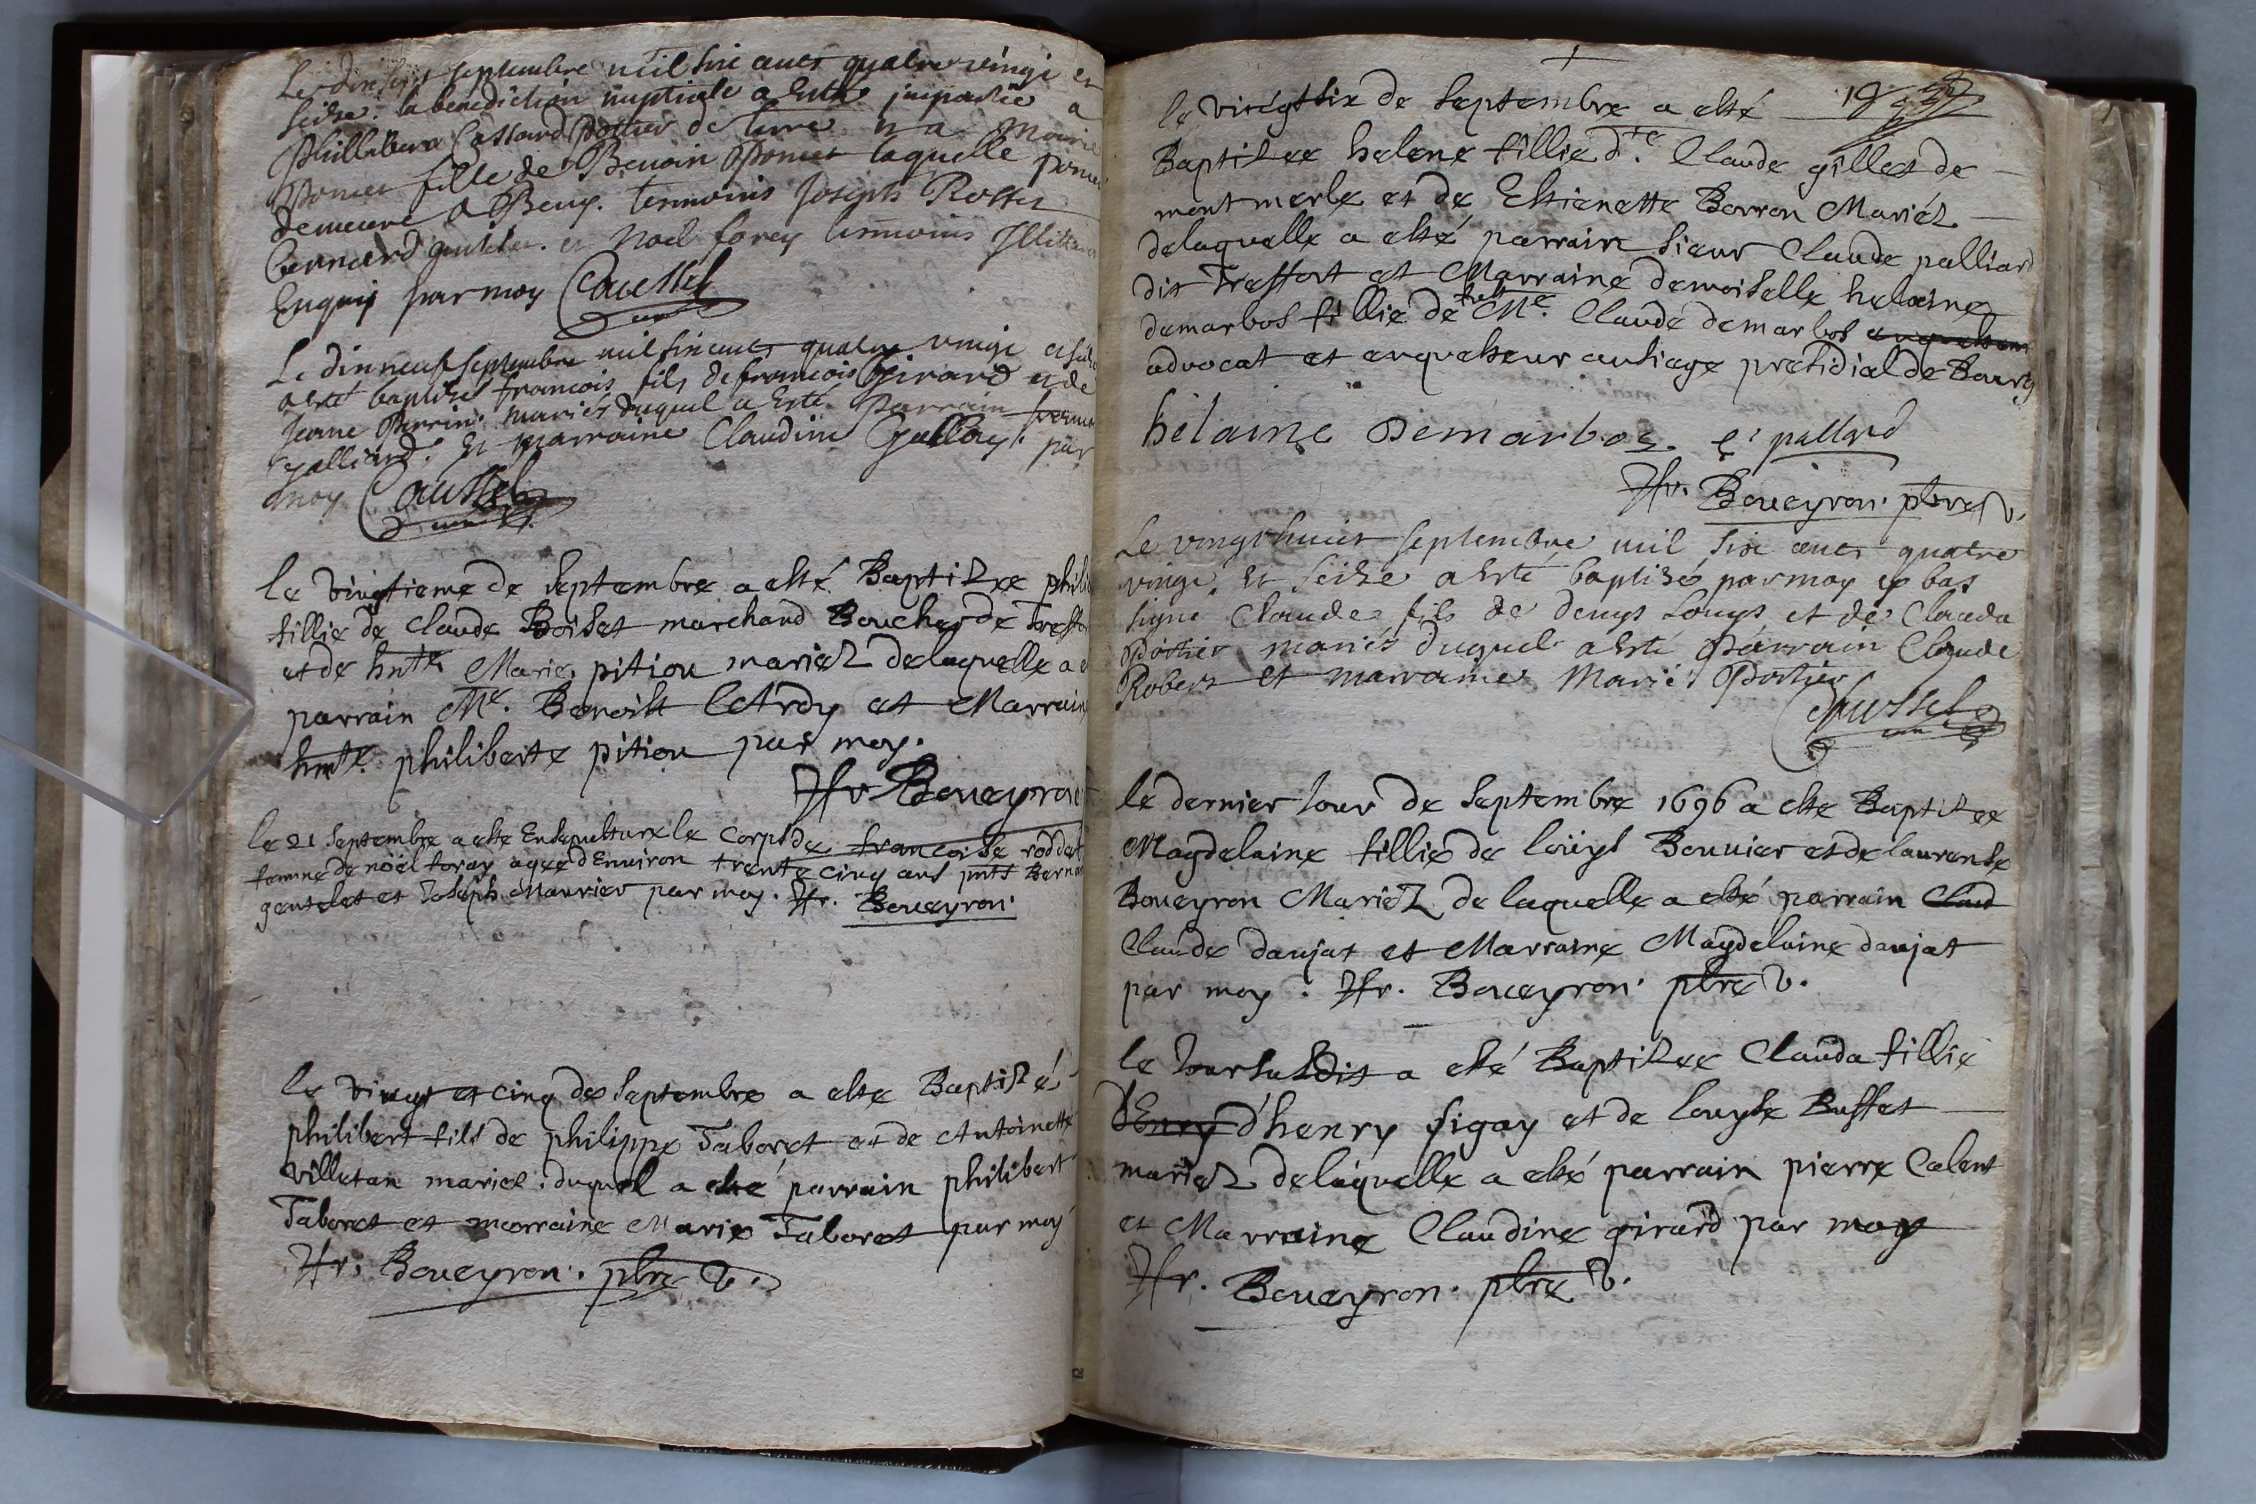 Le dixsept septembre mil six cents quatre vingt et
seize la benediction nuptiale a esté impartie a
Philliberd Cassard Potier de terre et a Marie
Poncet fille de Benoin Poncet laquelle Poncet
demeure a Beny. temmoins Joseph Rosset
bernard et Noel forey temmoins Illitterés
Enquis par moy Caussel
Le dixneuf septembre mil six cents quatre vingt et seize
a esté baptisé francois fils de francois Girard et de
Jeane Perrin mariés duquel a esté Parrain
galliard Et marraine Claudine Gallay par
moy Caussel
le vingtieme de septembre a esté Baptizee phili
fillie de Claude Boiset marchand Boucher de Treffo
et de hnte Marie pitiou mariez delaquelle a e
parrain Me. Benoist Ardy et Marrain
hnte philiberte pitiou par moy.
Hr Boueyron
le 21 Septembre a esté Ensepulturé le corps de francoise roddet
famme de noël foray agee d'Environ trente cinq ans pnts Berna
gentelet et Joseph Maurier par moy. Hr. Boueyron.
le vingt et cinq de Septembre a esté Baptizé
philibert fils de philippe Taboret et de Antoinette
villetan mariez duquel a esté parrain philibert
Taboret et marraine Marie Taboret par moy
Hr. Boueyron. pbre V.
le vingtsix de Septembre a esté
Baptizee helene fillie dte Claude gillet de
montmerle et de Estienette Borron Mariéz
delaquelle a esté parrain sieur Claude palliard
dit Treffort et Marraine demoiselle helaine
demarbos fillie de Me. Claude demarbos enquesteur
advocat et enquesteur au siege presidial de Bourg
hélaine Demarbos. C. pallard
Hr. Boueyron. pbre V.
Le vingt huict septembre mil six cents quatre
vingt et seize a esté baptisé par moy en bas
signé Claude fils de denys Louys et de Clauda
Portier mariés duquel a esté Parrain Claude
Robert et marraine Marie Portier
Caussel
le dernier Jour de Septembre 1696 a esté Baptizee
Magdelaine fillie de loüys Bouvier et de laurense
Boueyron Mariéz de laquelle a esté parrain Claud
Claude danjat et Marraine Magdelaine danjat
par moy. Hr. Boueyron. pbre V.
le Jour susdit a esté Baptizee Clauda fillie
d'Enry d'henry figay et de louyse Buffet
mariez delaquelle a esté parrain pierre Calent
et Marraine Claudine girard par moy
Hr. Boueyron. pbre V.